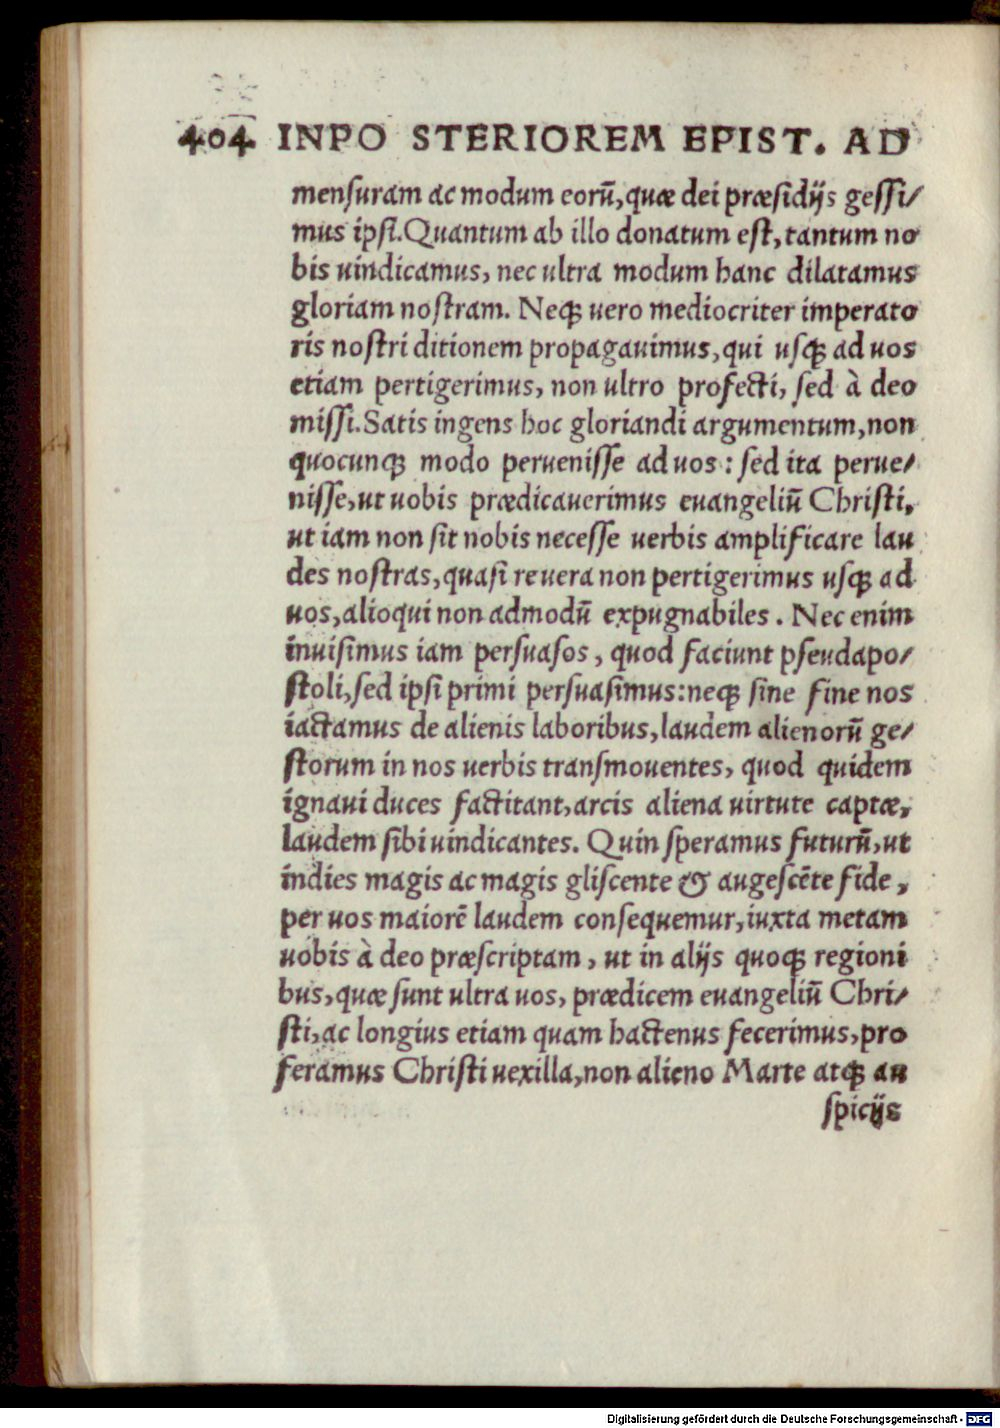 404 INPO STERIOREM EPIST. AD
menſuram ac modum eorū, quæ dei præſidijs geſſi/
mus ipſi. Quantum ab illo donatum eſt, tantum no
bis uindicamus, nec ultra modum hanc dilatamus
gloriam noſtram. Neqꝫ uero mediocriter imperato
ris noſtri ditionem propagauimus, qui uſqꝫ ad uos
etiam pertigerimus, non ultro profecti, ſed à deo
miſſi. Satis ingens hoc gloriandi argumentum, non
quocunqꝫ modo perueniſſe ad uos: ſed ita perue/
niſſe, ut uobis prædicauerimus euangeliū Chriſti,
ut iam non ſit nobis neceſſe uerbis amplificare lau
des noſtras, quaſi reuera non pertigerimus uſqꝫ ad
uos, alioqui non admodū expugnabiles. Nec enim
inuiſimus iam perſuaſos, quod faciunt pſeudapo/
ſtoli, ſed ipſi primi perſuaſimus: neqꝫ ſine fine nos
iactamus de alienis laboribus, laudem alienorū ge/
ſtorum in nos uerbis tranſmouentes, quod quidem
ignaui duces factitant, arcis aliena uirtute captæ,
laudem ſibi uindicantes. Quin ſperamus futurū, ut
indies magis ac magis gliſcente & augeſcēte fide,
per uos maiorē laudem conſequemur, iuxta metam
uobis à deo præſcriptam, ut in alijs quoqꝫ regioni
bus, quæ ſunt ultra uos, prædicem euangeliū Chri/
ſti, ac longius etiam quam hactenus fecerimus, pro
feramus Chriſti uexilla, non alieno Marte atqꝫ au
ſpicijs
Digitalisierung gefördert durch die Deutsche Forschungsgemeinschaft - DFG